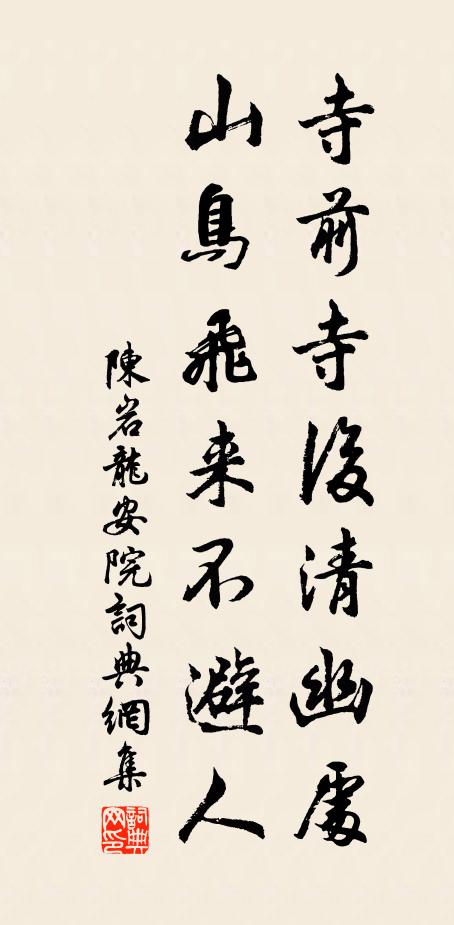 寺前寺後清幽處
山鳥飛来不避人
陳岩龍安院詞典網集
詞典网印